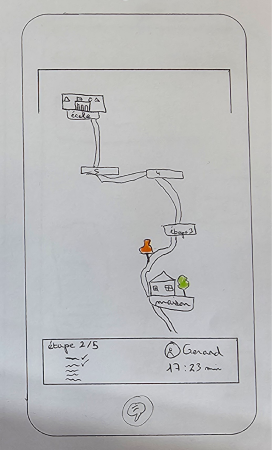 école
5
4
étape 3
maison
étape 2/5
Gerard
17:23 min